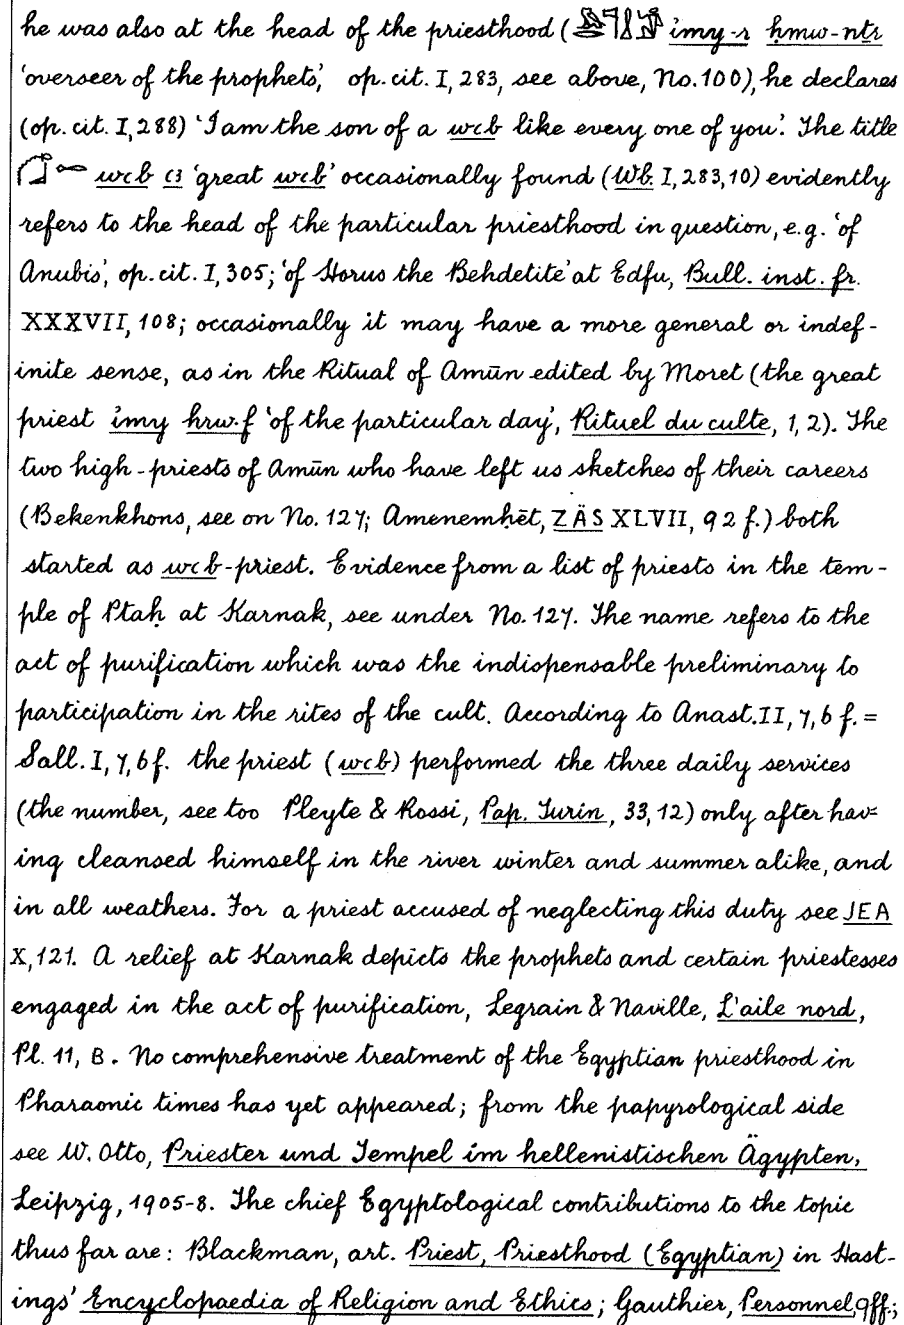 he was also at the head of the priesthood ( i͗my-r ḥmw-nṯr
'overseer of the prophets', op. cit. I, 283, see above, No. 100), he declares
(op. cit. I, 288) 'I am the son of a wꜥb like every one of you'. The title
wꜥb ꜥꜣ 'great wꜥb' occasionally found (Wb. I, 283, 10) evidently
refers to the head of the particular priesthood in question, e.g. 'of
Anubis', op. cit. I, 305; 'of Horus the Behdetite' at Edfu, Bull. inst. fr.
XXXVII, 108; occasionally it may have a more general or indef-
inite sense, as in the Ritual of Amūn edited by Moret (the great
priest i͗my hrw·f 'of the particular day', Rituel du culte, 1, 2). The
two high-priests of Amūn who have left us sketches of their careers
(Bekenkhons, see on No. 127; Amenemḥēt, ZÄS XLVII, 92 f.) both
started as wꜥb-priest. Evidence from a list of priests in the tem-
ple of Ptaḥ at Karnak, see under No. 127. The name refers to the
act of purification which was the indispensable preliminary to
participation in the rites of the cult. According to Anast. II, 7, 6 f. =
Sall. I, 7, 6 f. the priest (wꜥb) performed the three daily services
(the number, see too Pleyte & Rossi, Pap. Turin, 33, 12) only after hav-
ing cleansed himself in the river winter and summer alike, and
in all weathers. For a priest accused of neglecting this duty see JEA
X, 121. A relief at Karnak depicts the prophets and certain priestesses
engaged in the act of purification, Legrain & Naville, L'aile nord,
Pl. 11, B. No comprehensive treatment of the Egyptian priesthood in
Pharaonic times has yet appeared; from the papyrological side
see W. Otto, Priester und Tempel im hellenistischen Ägypten,
Leipzig, 1905-8. The chief Egyptological contributions to the topic
thus far are: Blackman, art. Priest, Priesthood (Egyptian) in Hast-
ings' Encyclopaedia of Religion and Ethics; Gauthier, Personnel, 9ff.;